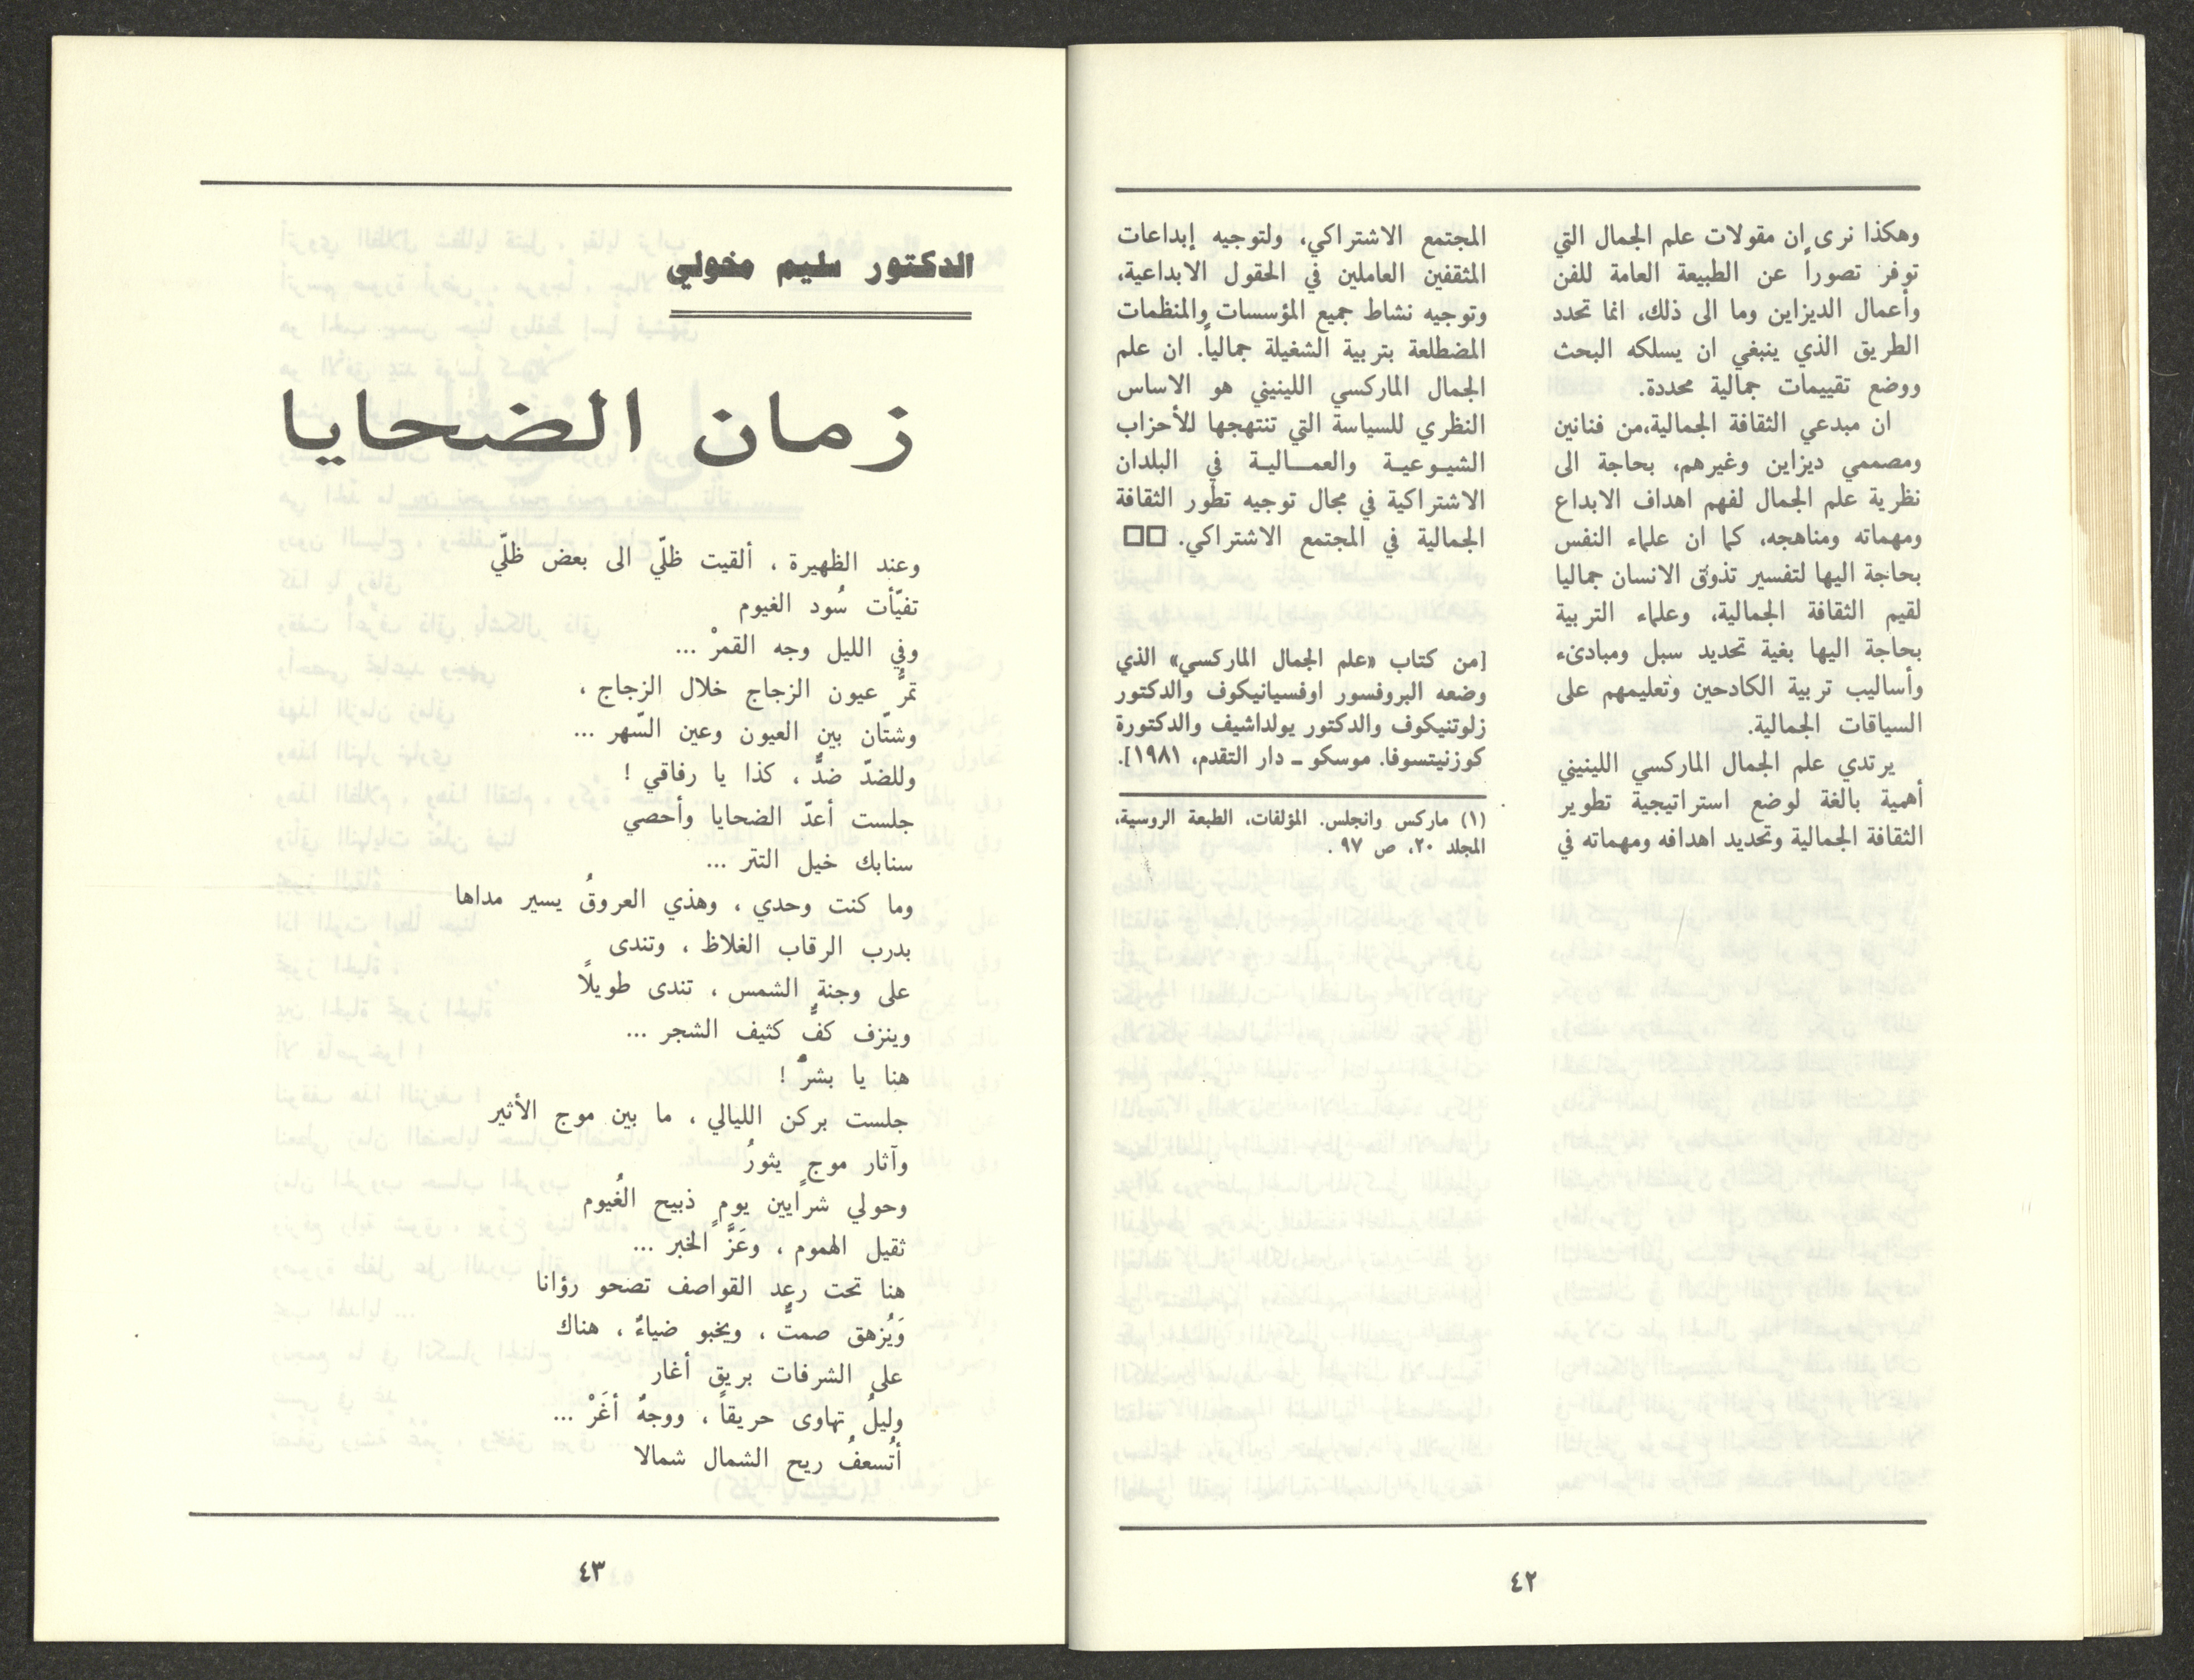 وهكذا نرى ان مقولات علم الجمال التي
توفر تصوراً عن الطبيعة العامة للفن
وأعمال الديزاين وما الى ذلك، انما تحدد
الطريق الذي ينبغي ان يسلكه البحث
ووضع تقييمات جمالية محددة.
ان مبدعي الثقافة الجمالية،من فنانين
ومصممي ديزاين وغيرهم، بحاجة الى
نظرية علم الجمال لفهم اهداف الابداع
ومهماته ومناهجه، كما ان علماء النفس
بحاجة اليها لتفسير تذوق الانسان جماليا
لقيم الثقافة الجمالية، وعلماء التربية
بحاجة اليها بغية تحديد سبل ومبادىء
وأساليب تربية الكادحين وتعليمهم على
السياقات الجمالية.
يرتدي علم الجمال الماركسي اللينيني
أهمية بالغة لوضع استراتيجية تطوير
الثقافة الجمالية وتحديد اهدافه ومهماته في
المجتمع الاشتراكي، ولتوجيه إبداعات
المثقفين العاملين في الحقول الابداعية،
وتوجيه نشاط جميع المؤسسات والمنظمات
المضطلعة بتربية الشغيلة جمالياً. ان علم
الجمال الماركسي اللينيني هو الاساس
النظري للسياسة التي تنتهجها للأحزاب
الشيوعية والعمالية في البلدان
الاشتراكية في مجال توجيه تطور الثقافة
الجمالية في المجتمع الاشتراكي. □□
[من كتاب «علم الجمال الماركسي» الذي
وضعه البروفسور اوفسيانيكوف والدكتور
زلوتنيكوف والدكتور يولداشيف والدكتورة
كوزنيتسوفا. موسكو ـ دار التقدم، ١٩٨١].
(١) ماركس وانجلس. المؤلفات، الطبعة الروسية،
المجلد ٢٠، ص ٩٧ .
٤٢
الدكتور سليم مخولي
زمان الضحايا
وعند الظهيرة ، ألقيت ظلّي الى بعض ظلّي
تفيّأت سُود الغيوم
وفي الليل وجه القمرْ ...
تمرُّ عيون الزجاج خلال الزجاج ،
وشتّان بين العيون وعين السّهر ...
وللضدّ ضدٌّ ، كذا يا رفاقي !
جلست أعدّ الضحايا وأحصي
سنابك خيل التتر ...
وما كنت وحدي ، وهذي العروقُ يسير مداها
بدرب الرقاب الغلاظ ، وتندى
على وجنة الشمس ، تندى طويلاً
وينزف كفٌّ كثيف الشجر ...
هنا يا بشرٌ !
جلست بركن الليالي ، ما بين موج الأثير
وآثار موج يثورُ
وحولي شرايين يومٍ ذبيح الغُيوم
ثقيل الهموم ، وعَزَّ الخبر ...
هنا تحت رعد القواصف تصحو رؤانا
وَيُزهق صمتٌ ، ويخبو ضياءٌ ، هناك
على الشرفات بريق أغار
وليلٌ تهاوى حريقاً ، ووجهٌ أغَرْ ...
أتُسعفُ ريح الشمال شمالا
٤٣